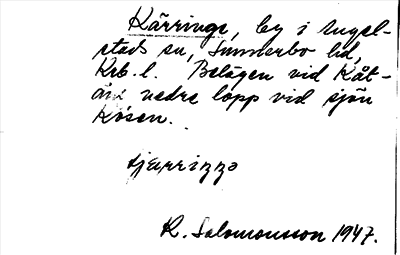 Kärringe, by i Angel-
stads sn, Sunnerbo hd,
Krb. l. Belägen vid Kåt-
åns nedre lopp vid sjön
Kösen.
R. Salomonsson 1947.